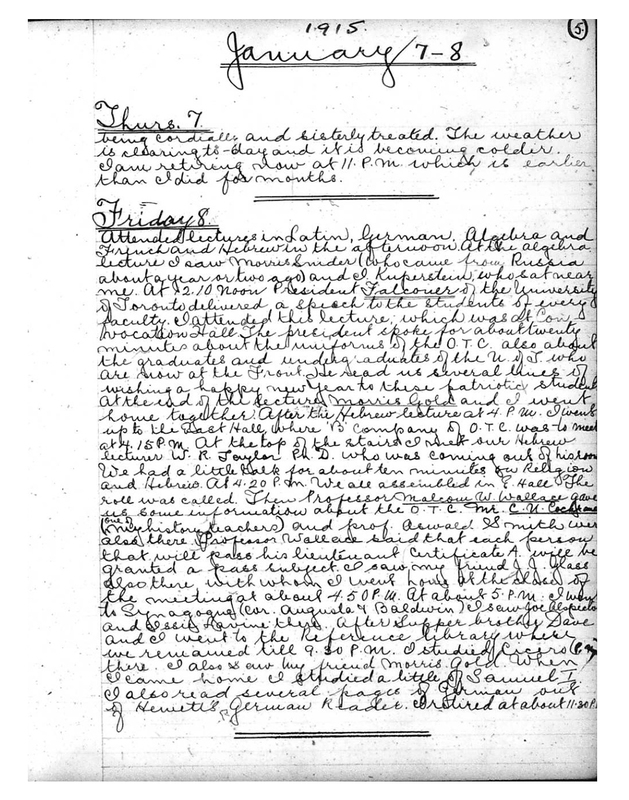 1915.
5
January 7-8
Thurs. 7
being cordially and sisterly treated. The weather
is clearing to-day and it is becoming colder.
I am retiring now at 11 P.M. which is earlier
than I did for months.
Friday 8
Attended lectures in Latin, German, Algebra and
French and Hebrew in the afternoon. At the algebra
lecture I saw Morris Snider (who came from Russia
about a year or two ago) and I. Kuperstein, who sat near
me. At 12.10 Noon President Falconer of the University
of Toronto delivered a speech to the students of every
faculty. I attended this lecture, which was at Con-
vocation Hall. The president spoke for about twenty
minutes about the uniforms of the O.T.C. also about
the graduates and undergraduates of the U. of T. who
are now at the Front. He read us several lines of
wishing a happy new year to these patriotic students
At the end of the lecture Morris Gold and I went
home together. After the Hebrew lecture at 4 P.M. I went
up to the East Hall, where 'B' Company of O.T.C. was to meet
at 4.15 P.M. At the top of the stairs I met our Hebrew
lecturer W. R. Taylor Ph.D. who was coming out of his room
We had a little talk for about ten minutes on Religion
and Hebrew. At 4.20 P.M. We all assembled in E. Hall. The
roll was called. Then Professor Malcom W. Wallace gave
us some information about the O.T.C. Mr. C. N. Cochrane
(one of my history teachers) and prof. Aswald S. Smith were
also there. Professor Wallace said that each person
that will pass his lieutenant Certificate A. will be
granted a pass subject. I saw my friend J. J. Glass
also there with whom I went home at the close of
the meeting at about 4.50 P.M. At about 5 P.M. I went
to Synagogue (cor. Augusta & Baldwin) I saw Joe
and Issie there. After Supper brother Dave
and I went to the Reference library where
we remained till 9.30 P.M. I studied Cicero
there. I also saw my friend Morris Gold. When
I came home I studied a little of Samuel I.
I also read several pages of German out
of Hewett's German Reader. I retired at about 11.30 P.